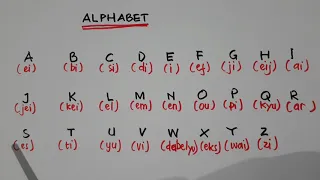 ALPHABET
A B C D E F G H I
(ei) (bi) (si) (di) (i) (ef) (ji) (eij) (ai)
J K L M N O P Q R
(jei) (kei) (el) (em) (en) (ou) (pi) (kyu) (ar)
S T U V W X Y Z
(es) (ti) (yu) (vi) (dabelyu) (eks) (wai) (zi)